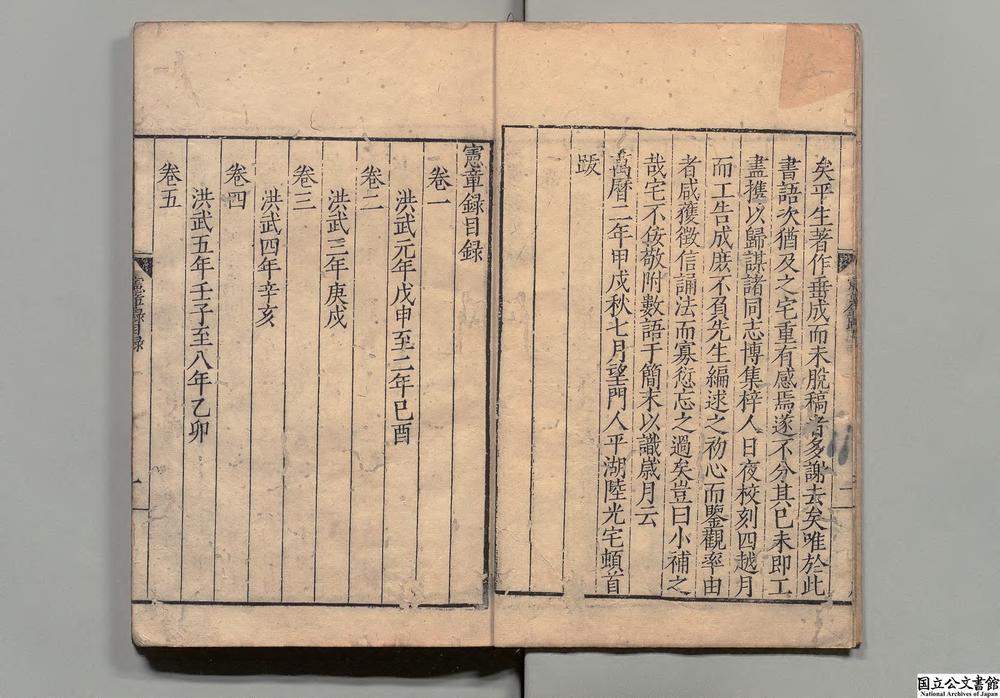 矣平生著作垂成而未脫稿者多謝去矣唯於此
書語次猶及之宅重有感焉遂不分其已未即工
盡擕以歸謀諸同志博集梓人日夜校刻四越月
而工告成庶不負先生編逑之初心而鑒觀率由
者咸獲徵信誦法而寡愆忘之過矣豈曰小補之
哉宅不佞敬附數語于簡末以識歲月云
萬曆二年甲戌秋七月望門人平湖陸光宅頓首
跋
二
憲章録目録
卷一
洪武元年戊申至二年己酉
卷二
洪武三年庚戌
卷三
洪武四年辛亥
卷四
洪武五年壬子至八年乙卯
卷五
憲章録目録
一
国立公文書館
National Archives of Japan